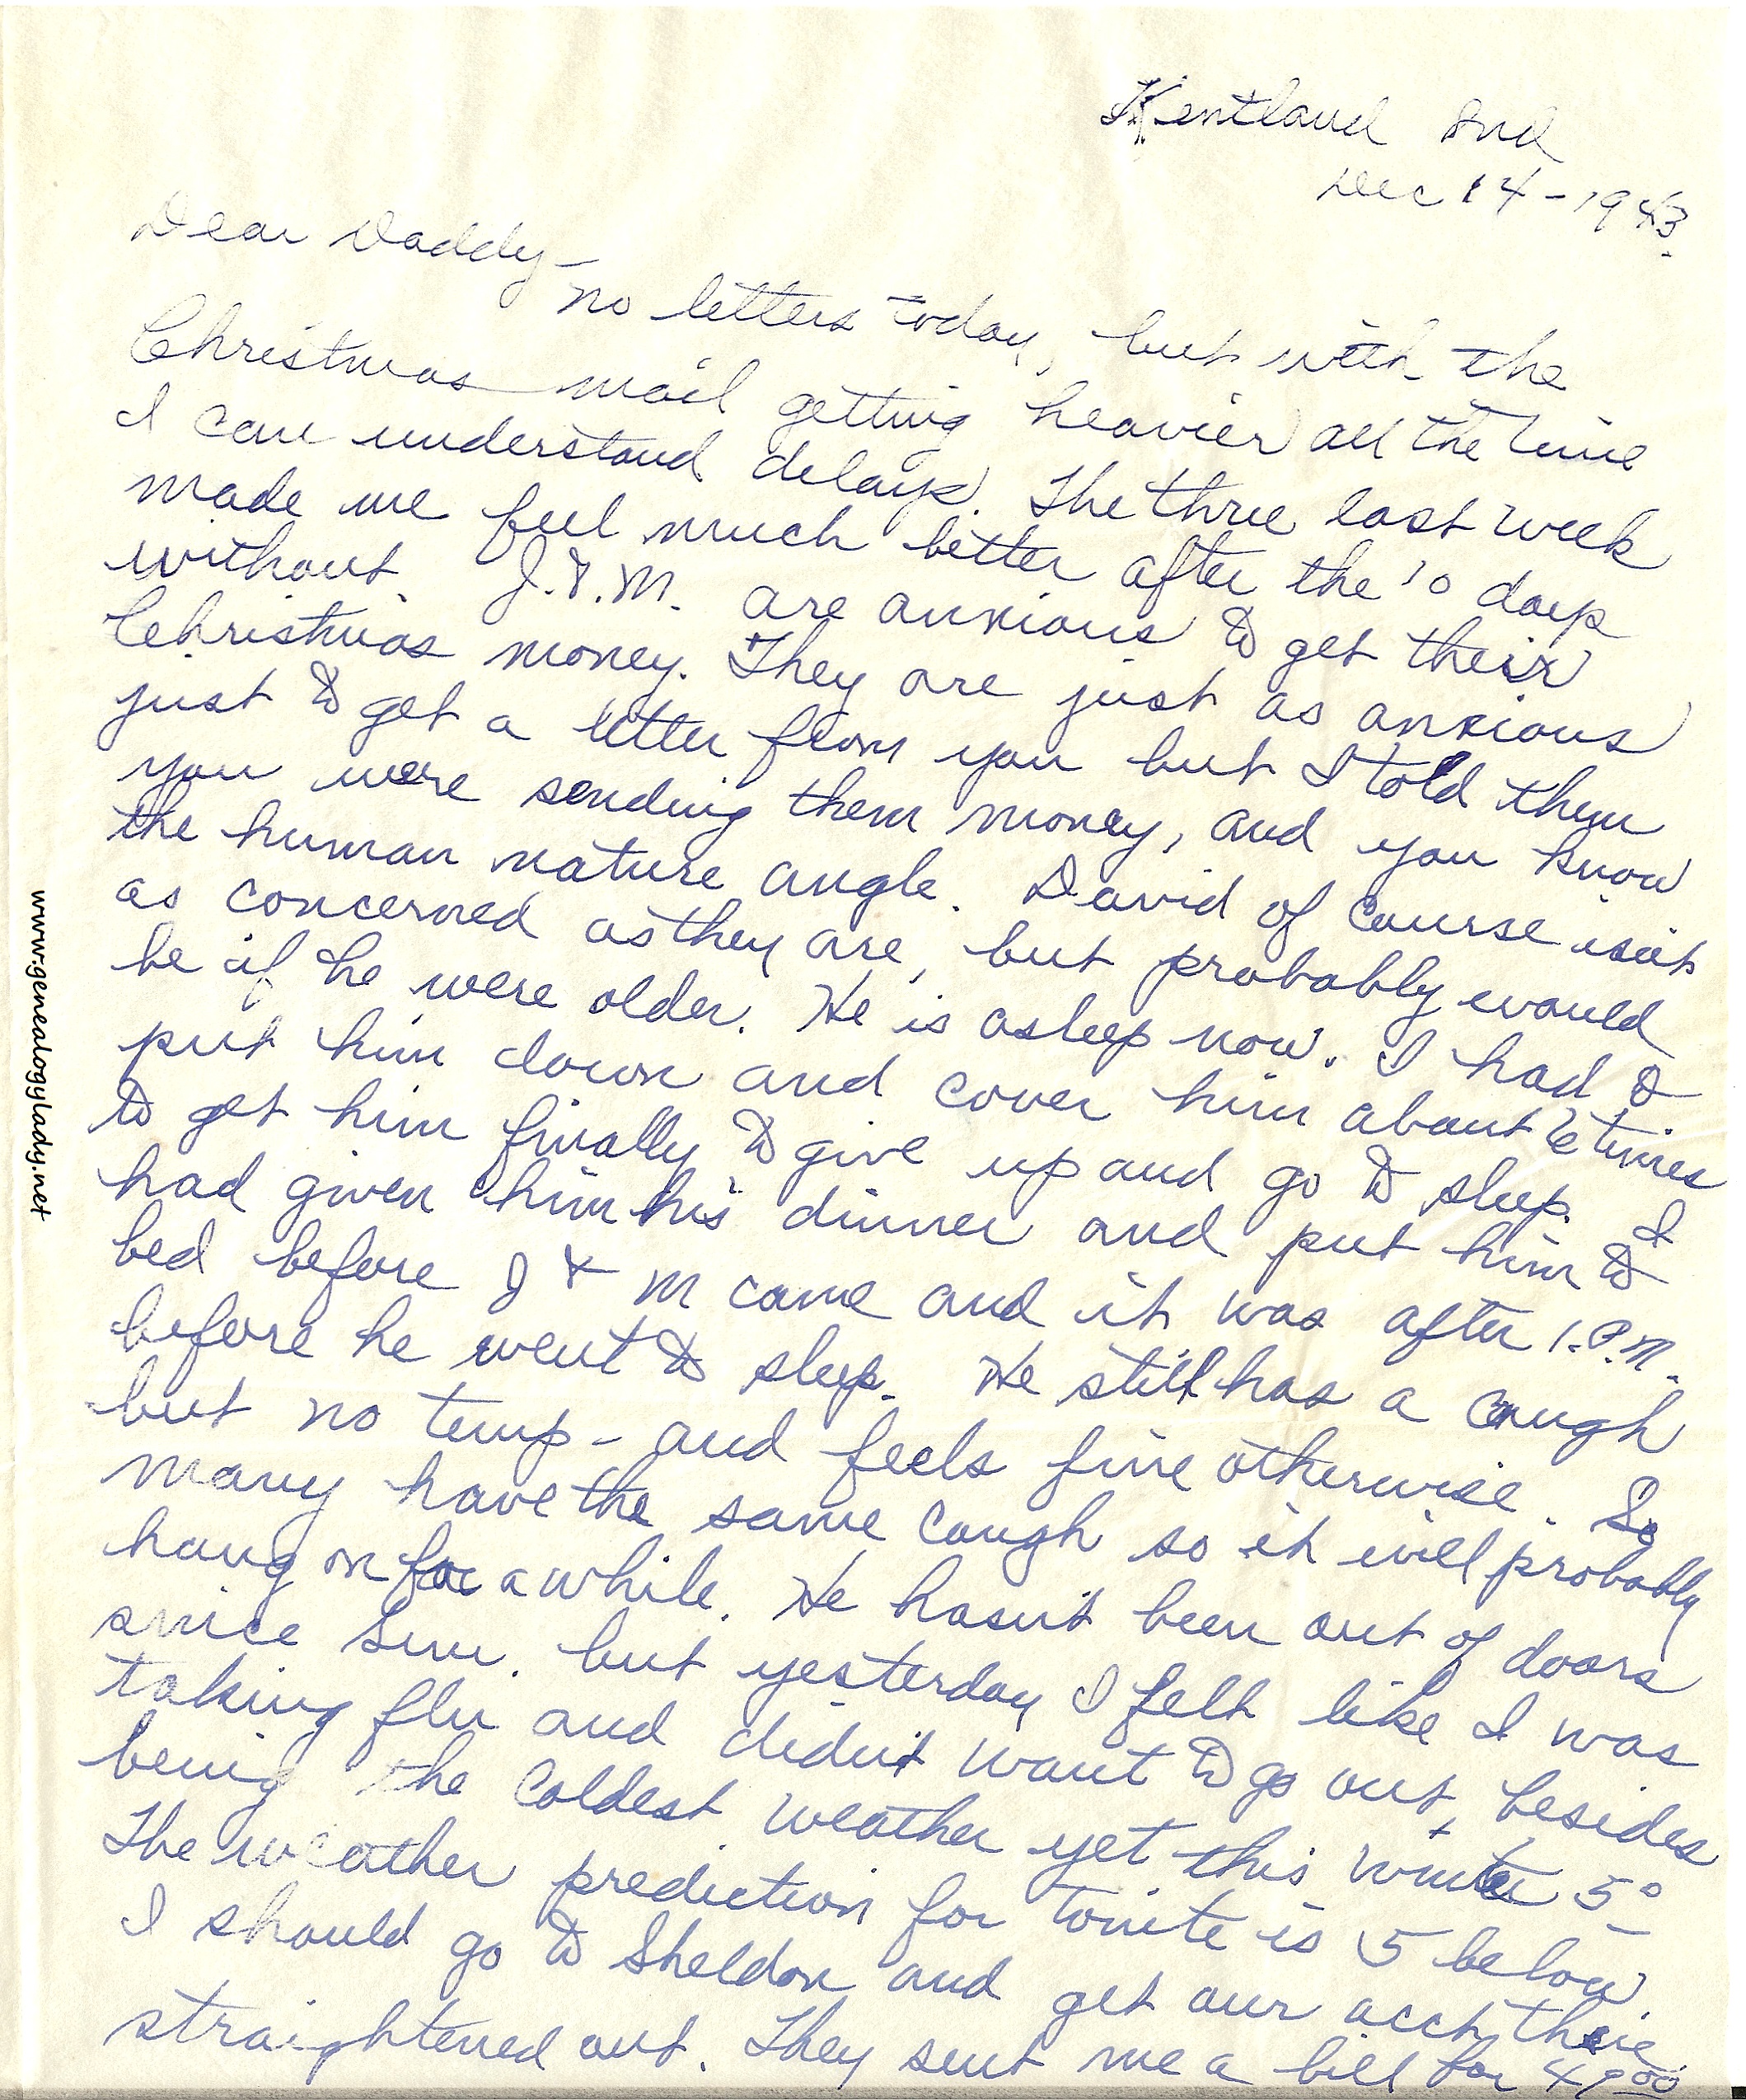 Kentland Ind
Dec 14 - 1943.
Dear Daddy -
No letters today, but with the
Christmas mail getting heavier all the time
I can understand delays. The three last week
made me feel much better after the 10 days
without. J. & M. are anxious to get their
Christmas money. They are just as anxious
just to get a letter from you but I told them
you were sending them money, and you know
the human nature angle. David of course isn't
as concerned as they are, but probably would
be if he were older. He is asleep now. I had to
put him down and cover him about 6 times
to get him finally to give up and go to sleep. I
had given him his dinner and put him to
bed before J & M came and it was after 1. P.M.
before he went to sleep. He still has a cough
but no temp - and feels fine otherwise. So
many have the same cough so it will probably
hang on for a while. He hasn't been out of doors
since Sun. but yesterday I felt like I was
taking flu and didn't want to go out, besides
being the coldest weather yet this winter + 5°
The weather prediction for tonite is 5 below.
I should go to Sheldon and get our acct there
straightened out. They sent me a bill for 49 00
www.genealogylady.net